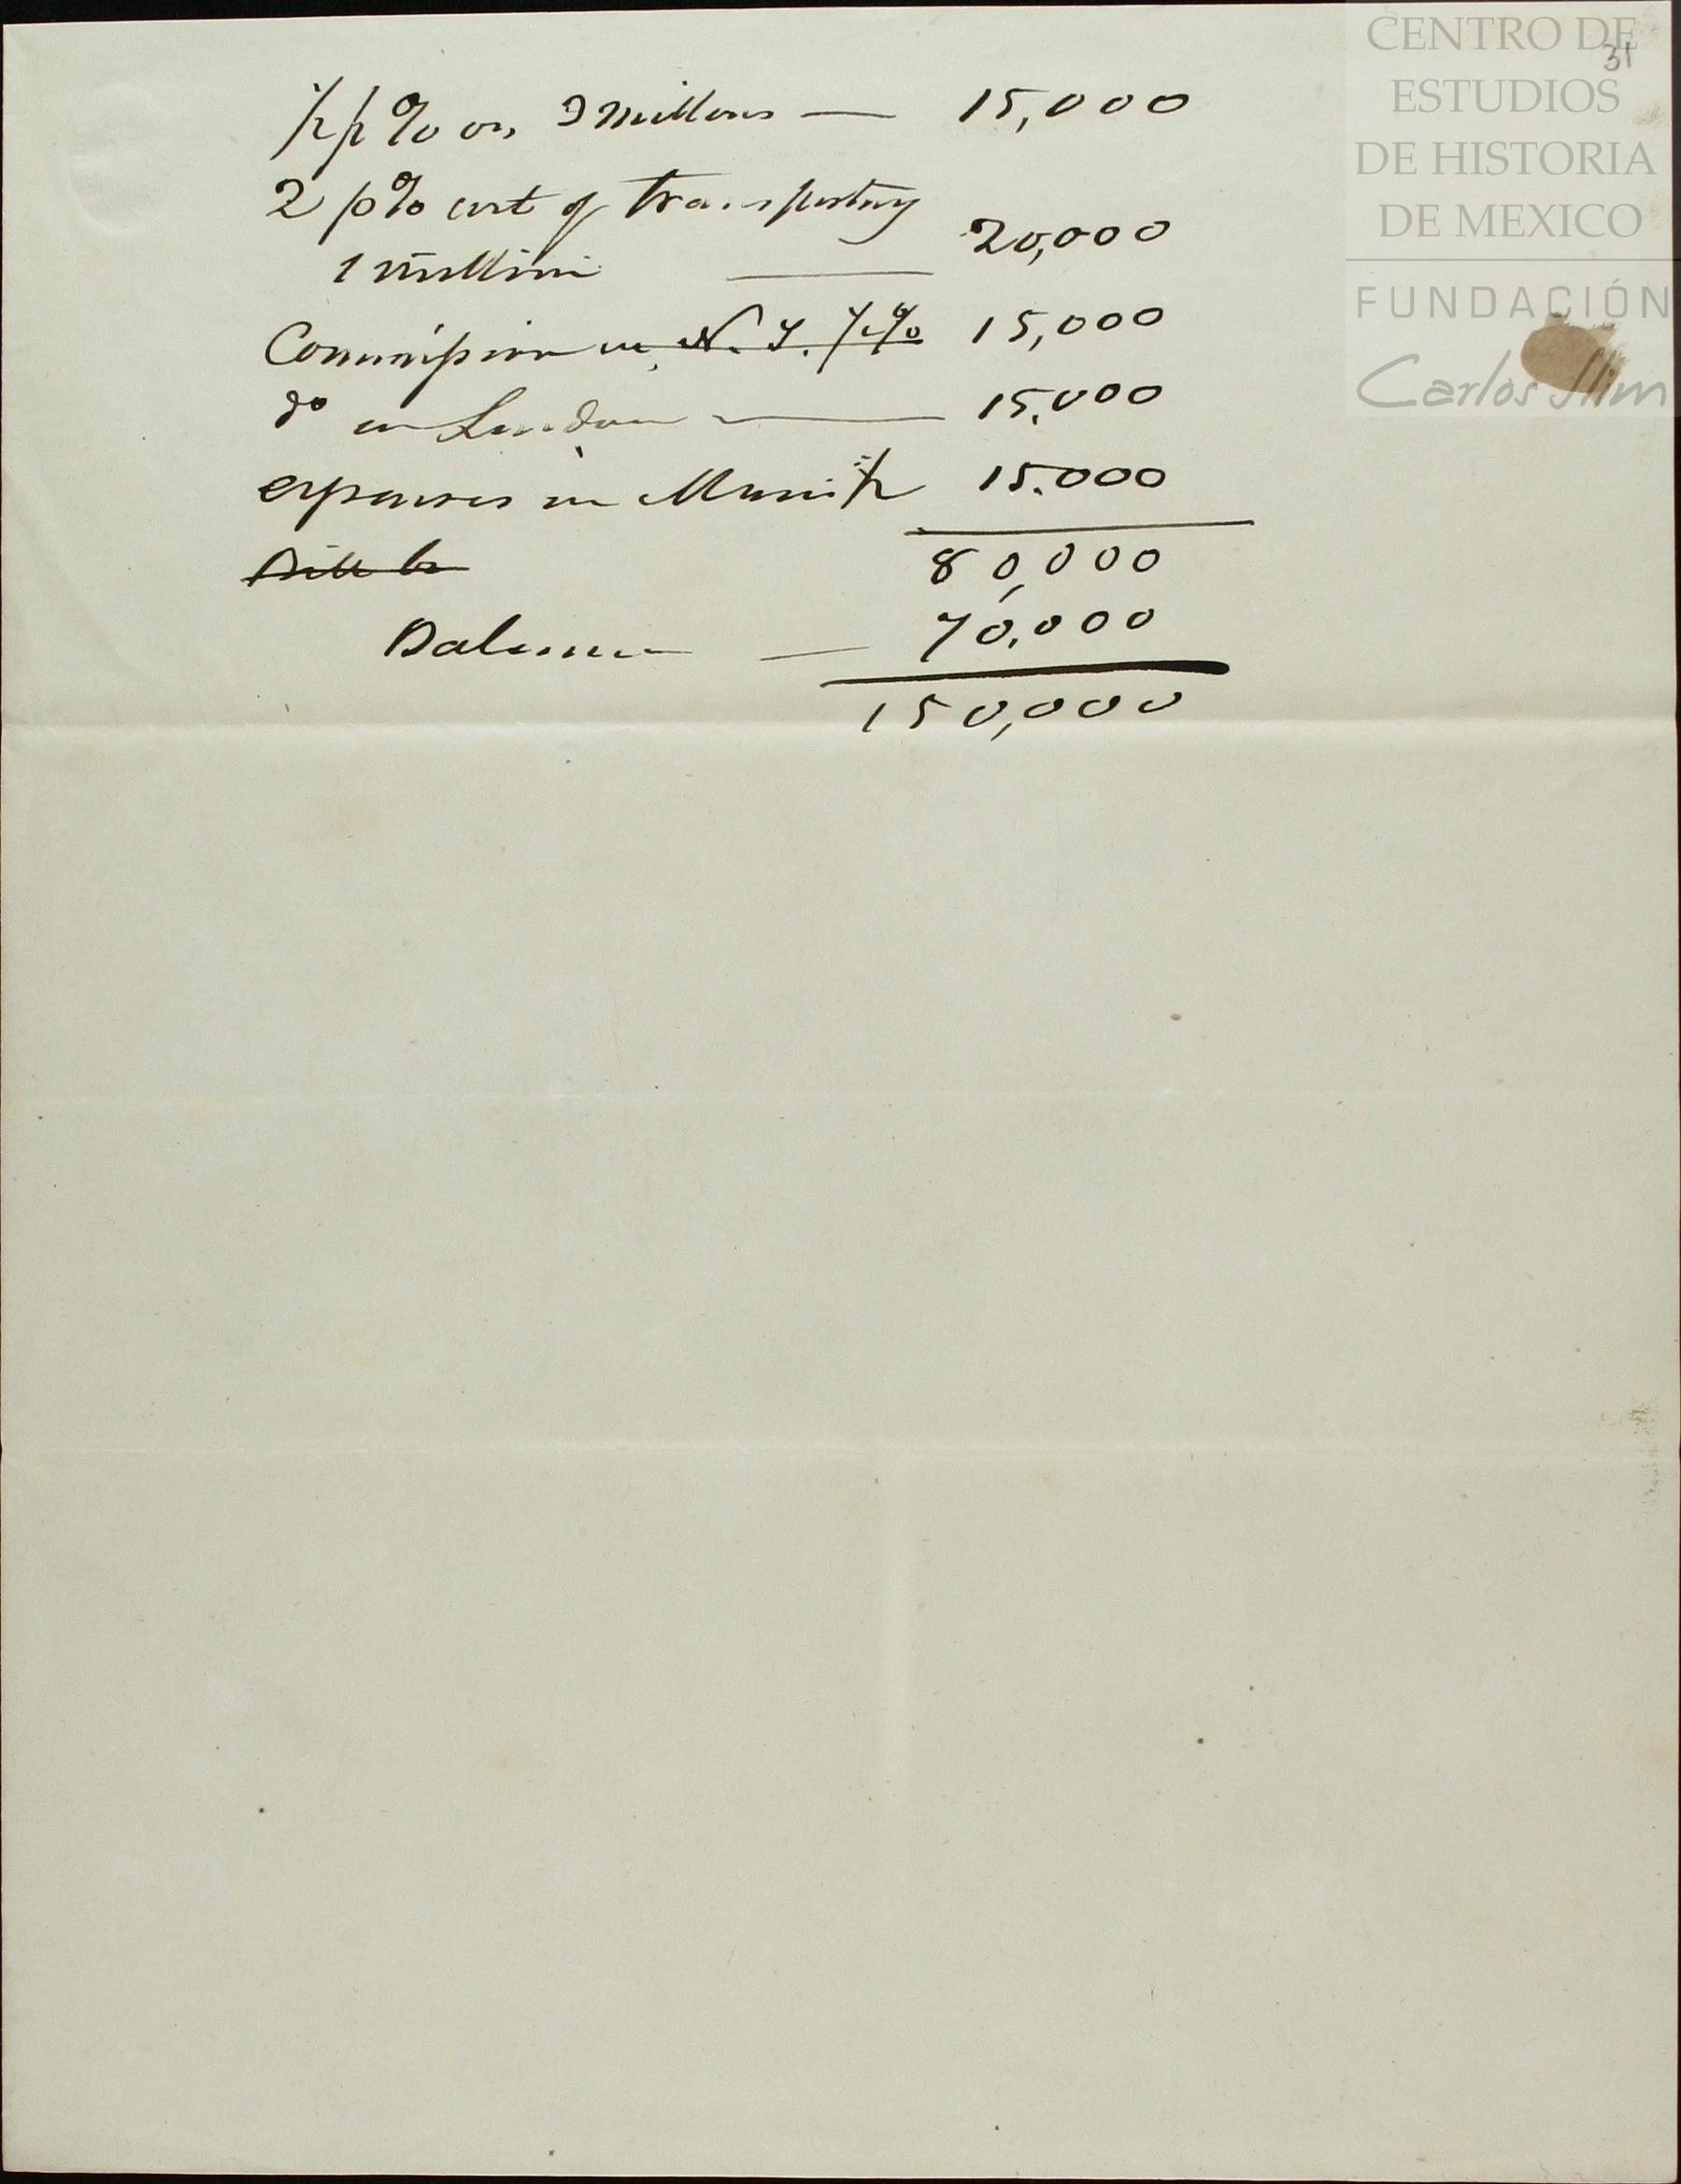 ½ p % on 3 millions — 15,000
2 p % cost of transporting
1 million — 20,000
Commission in N. Y. ½ % 15,000
do in London — 15.000
expenses in ½ 15.000
80,000
Balance — 70.000
150,000
31
CENTRO DE
ESTUDIOS
DE HISTORIA
DE MEXICO
FUNDACIÓN
Carlos Slim